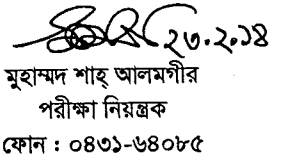 ২৩.২.১৪
মুহাম্মদ শাহ্ আলমগীর
পরীক্ষা নিয়ন্ত্রক
ফোন : ০৪৩১-৬৪০৮৫